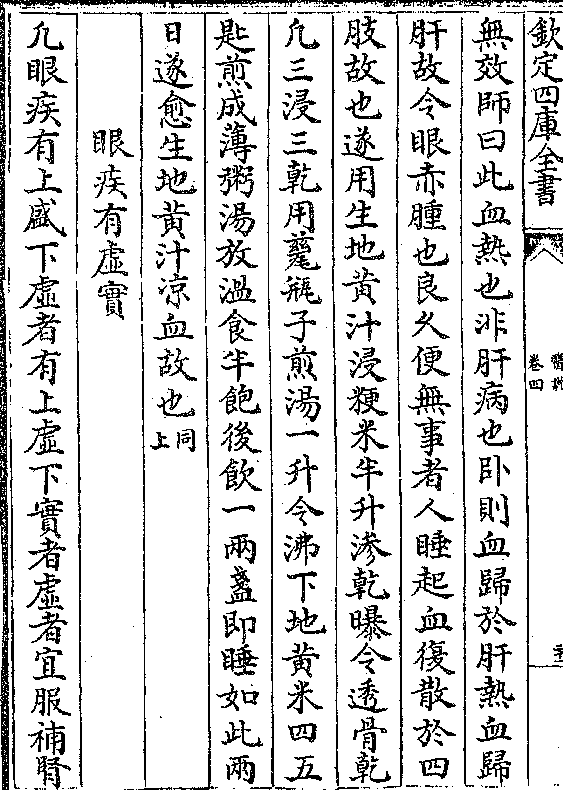 欽定四庫全書
醫說
卷四
無效師曰此血熱也非肝病也卧則血歸於肝熱血歸
肝故令眼赤腫也良久便無事者人睡起血復散於四
肢故也遂用生地黄汁浸粳米半升滲乾曝令透骨乾
凡三浸三乾用甆瓶子煎湯一升令沸下地黄米四五
匙煎成薄粥湯放溫食半飽後飲一兩盞即睡如此兩
日遂愈生地黄汁涼血故也同上
眼疾有虛實
凡眼疾有上盛下虛者有上虛下實者虛者宜服補腎